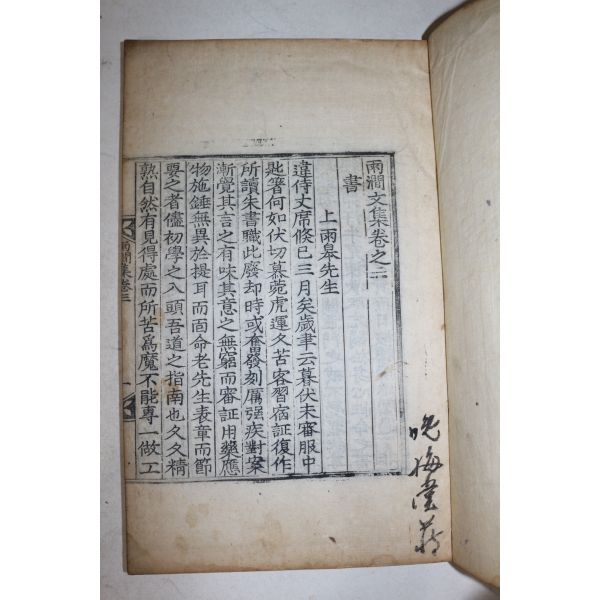 兩澗文集卷之二
書
上雨皐先生
違侍丈席倐已三月矣歲聿云暮伏未審服中
匙箸何如伏切慕菀虎運久苦客習宿証復作
所讀朱書職此廢却時或奮發刻厲强疾對案
漸覺其言之有味其意之無窮而審証用藥應
物施錘無異於提耳而面命老先生表章而節
要之者儘初學之入頭吾道之指南也久久精
熟自然有見得處而所苦爲魔不能專一做工
兩澗集卷三
一
晩梅堂藏